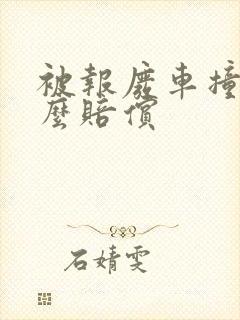 被報廢車撞
麼賠償
石婧雯